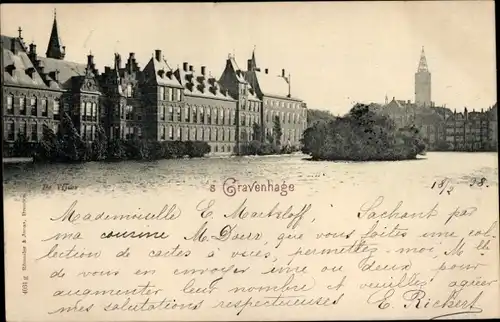 De Vijver
's Gravenhage
18/2 98.
Mademoiselle E. Markloff, Sachant par
ma cousine M. Doerr, que vous faites une col-
lection de cartes à vues, permettez-moi, Mlle
de vous en envoyer une ou deux pour
augmenter leur nombre et veuillez agréer
mes salutations respectueuses E. Rickert